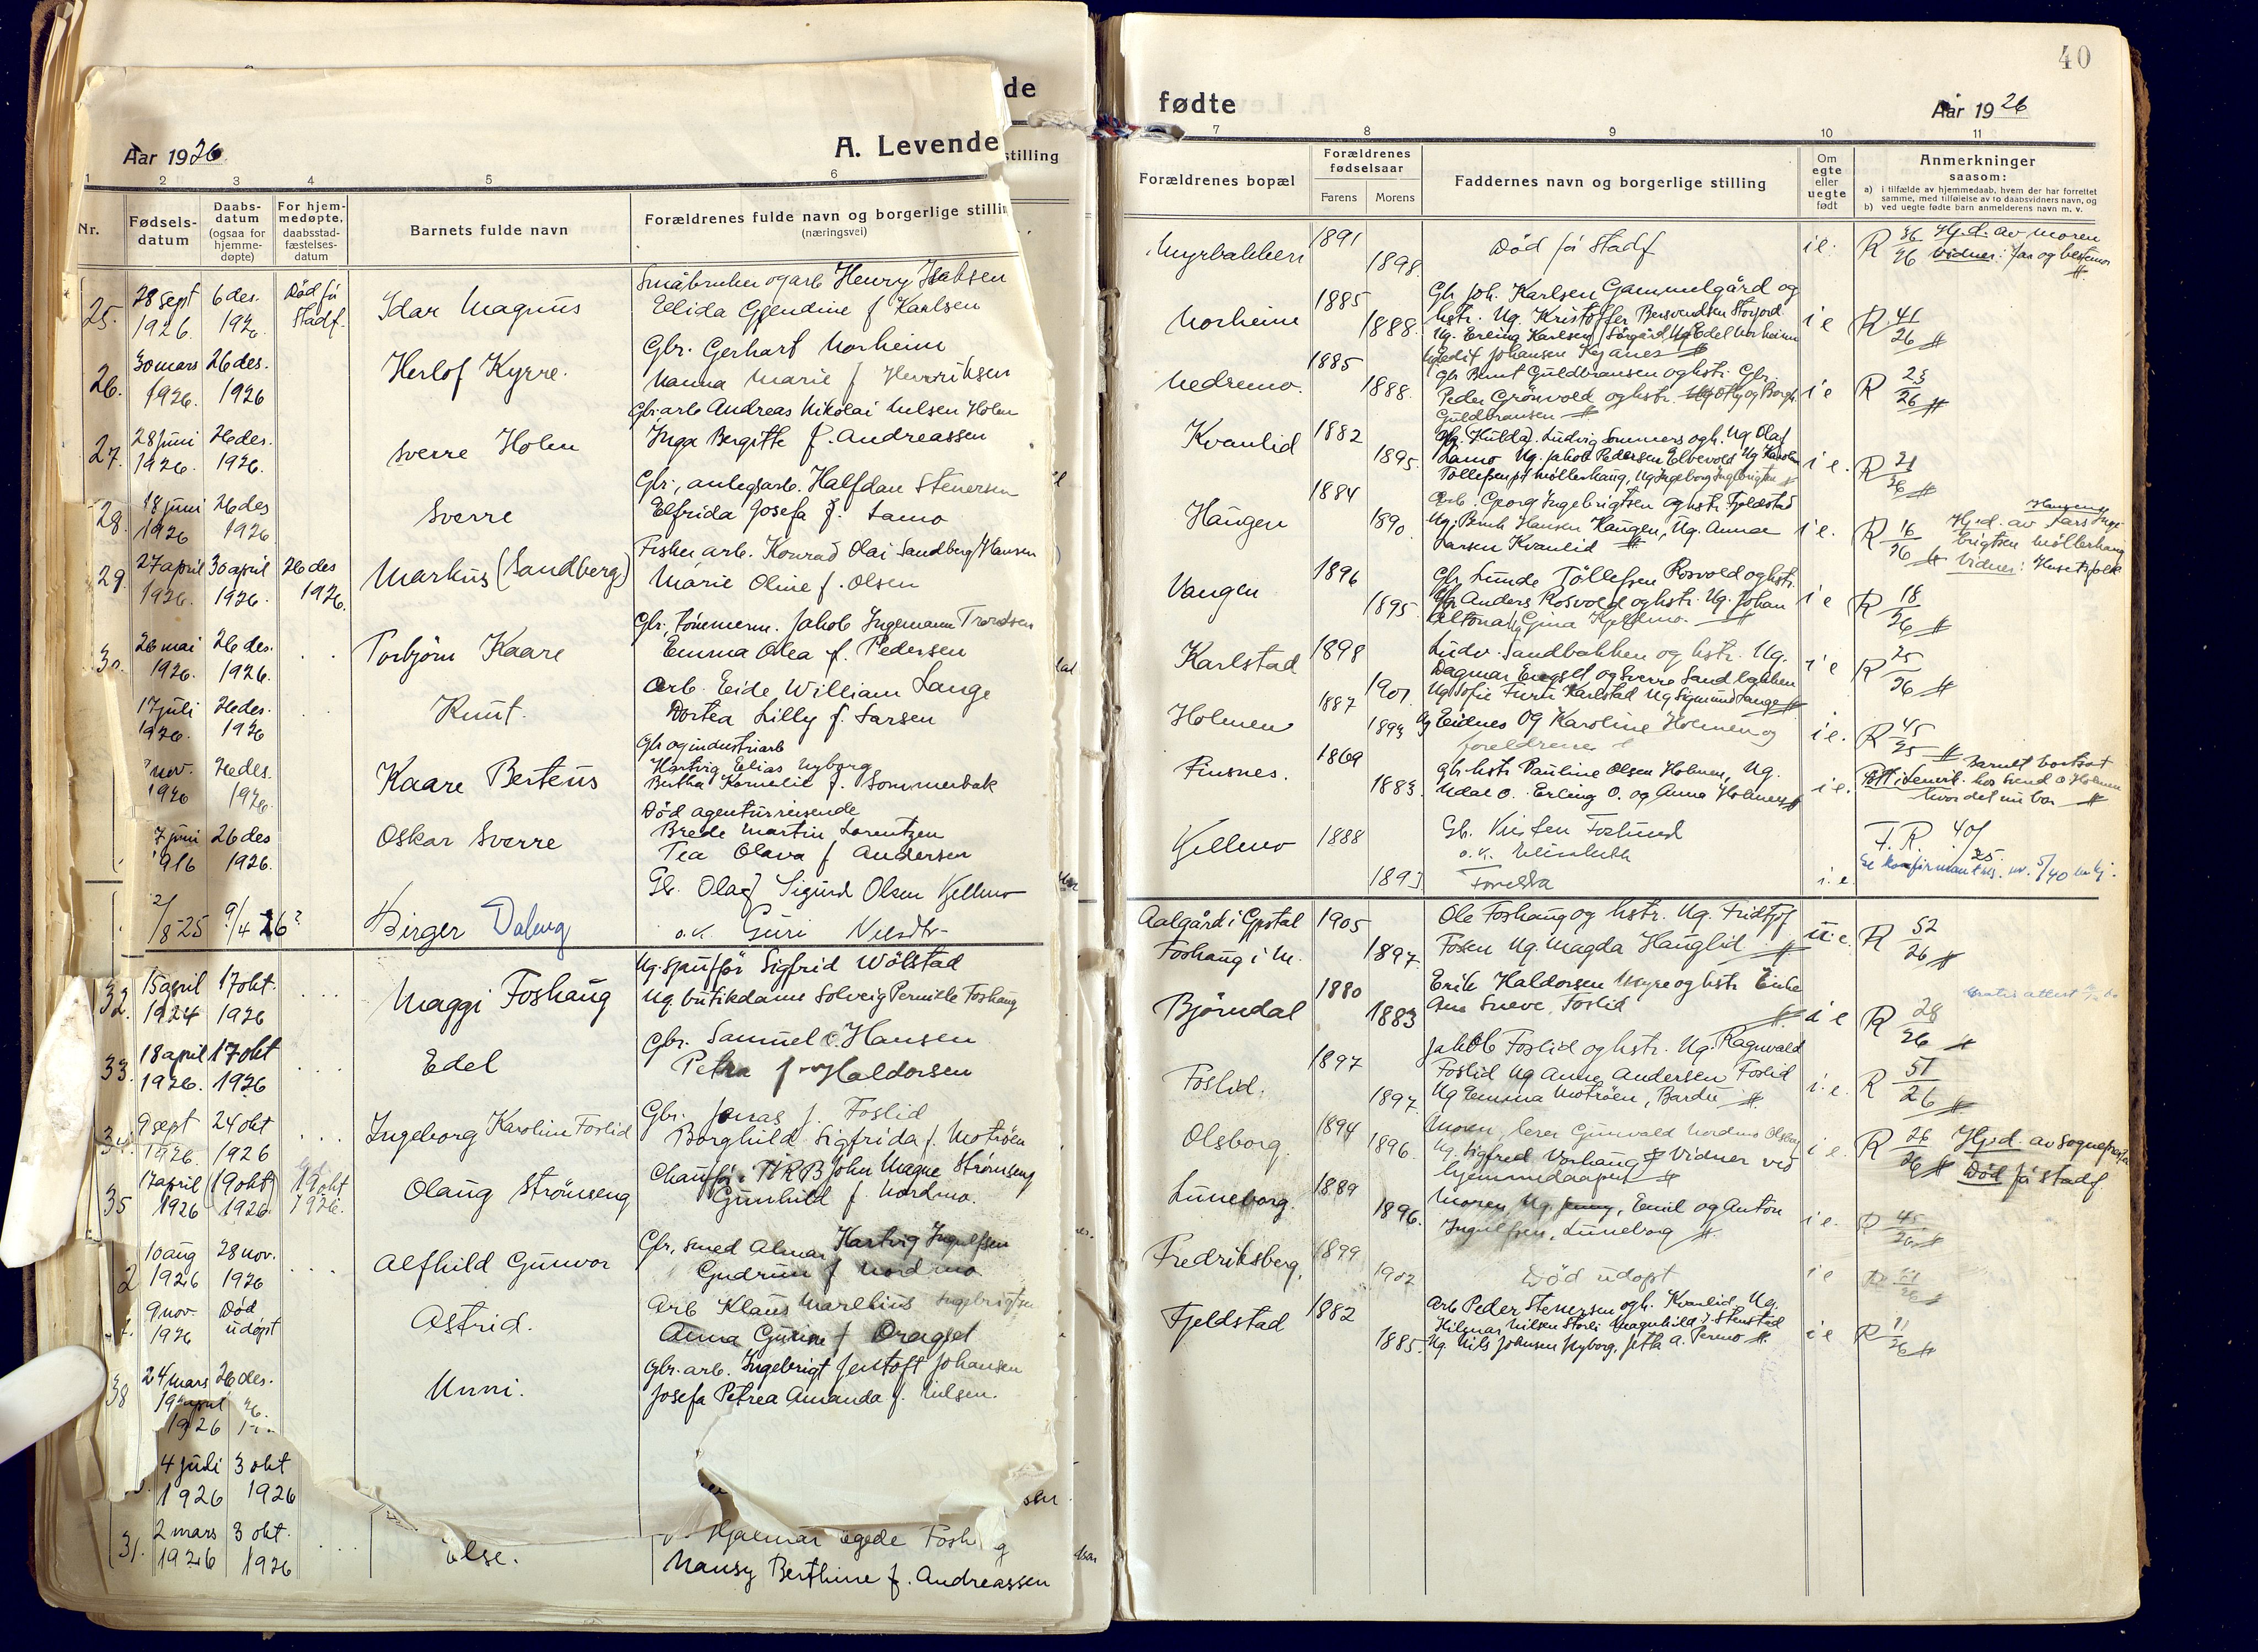 de
stilling
Aar 1926.
A. Levende
1 2 3 4 5 6
Nr.
Fødsels-
datum
Daabs-
datum
(ogsaa for
hjemme-
døpte)
For hjem-
medøpte.
daabsstad-
fæstelses-
datum
Barnets fulde navn
Forældrenes fulde navn og borgerlige stillin
(næringsvei)
25. 28 sept 6 des. Død før
1926. 1926 Stadf.
Idar Magnus
Småbruker og arb Henry Isaksen
Ellida Gjendine f Karlsen
26. 30 mars 26 des.
1926. 1926
Herlof Kyrre.
Gbr. Gerhart Norheim
Nanna Marie f Henriksen
27. 28 juni 26 des.
1926. 1926.
Sverre Holm
Gbr. arb Andreas Nikolai Nilsen Holm
Inga Bergitte f. Andreassen
28. 18 juni 26 des
1926 1926
Sverre
Gbr., anlegsarb. Halfdan Stenersen
Elfrida Josefa f. Lamo
29. 27 april 30 april 26 des
1926. 1926. 1926.
Markus (Sandberg)
Fisker arb. Konrad Olai Sandberg Hansen
Marie Oline f. Olsen
30. 26 mai 26 des.
1926. 1926.
Torbjørn Kaare
Gbr., tømmerm. Jakob Ingemann Trondsen
Emma Olea f. Pedersen
17 juli 26 des.
1926. 1926
Knut.
Arb. Eide William Lange
Dortea Lilly f. Larsen
nov. 26 des.
1926 1926.
Kaare Berteus
Gbr og industriarb
Hartvig Elias Nyborg
Bertha Kornelie f. Sommerbak
7 juni 26 des
1916 1926.
Oskar Sverre
Død agenturreisende
Brede Martin Lorentzen
Tea Olava f Andersen
2/8-25 9/4 26?
Birger Daleng
Gb. Olaf Sigurd Olsen Kjellmo
o.k. Guri
32. 15 april 17 okt.
1924 1926
Maggi Foshaug
Ug. sjauffør Sigfrid Wolstad
Ug butikdame Solveig Pernille Foshaug
33. 18 april 17 okt
1926. 1926
Edel
Gbr. Samuel O. Hansen
Petra f. Haldorsen
34. 9 sept 24 okt
1926. 1926
Ingeborg Karoline Foslid
Gbr. Jonas J. Foslid
Borghild Sigfrida f. Motrøen
35 17 april (19 okt) 19 okt
1926 1926 1926.
Olaug Strømseng
Chauffør i TKRB John Magne Strømseng
Gunhild f. Nordmo.
10 aug 28 nov.
1926 1926
Alfhild Gunvor
Gbr, smed Almar Hartvig Ingulfsen
Gudrun f Nordmo
9 nov Død
1926 udøpt
Astrid.
Arb Klaus Marelius Ingebrigtsen
Anna Gurine f Dragset
38 24 mars 26 des.
Unni.
Gbr. arb. Ingebrigt Jentoft Johansen
Josefa Petrea Amanda f. Nilsen.
1926
4 juli 3 okt
1926 1926
31. 2 mars 3 okt.
1926 1926
Else.
Hjalmar Egede Fosh g
Nansy Berthine f. Andreassen
40
fødte
Aar 1926
7 8 9 10 11
Forældrenes bopæl
Forældrenes
fødselsaar
Farens Morens
Faddernes navn og borgerlige stilling
Om
egte
eller
uegte
født
Anmerkninger
saasom:
a) i tilfælde av hjemmedaab, hvem der har forrettet
samme, med tilføielse av to daabsvidners navn, og
b) ved uegte fødte barn anmelderens navn m. v.
Myrbakken 1891 1898. Død før Stadf i e. R 36/26 Hj.d. av moren
Vidner: far og bestemor
Norheim 1885 1888. i e R 41/26
Gbr Joh. Karlsen Gammelgård og
hstr. Ug. Kristoffer Bersvendsen Storjord
Ug. Erling Karlsen Sørgård, Ug Edel Norheim
Ug Edit Johansen Kjanes
Nedremo. 1885 1888. i e R 23/26
Gbr Bernt Guldbransen og hstr. Gbr.
Peder Grønvold og hstr. Ug Otty og Borgh.
Guldbransen
Kvanlid 1882 1895. i e. R 21/26
Ug. (Hulda). Ludvig Sommers og h. Ug Olaf
Lamo Ug. Jakob Pedersen Elvevold Ug Karoline
Tollefsen på Møllerhaug, Ug Ingeborg Ingebrigtsen
Haugen 1884 1890. i e. R 16/26
Arb. Georg Ingebrigtsen og hstr. Fjeldstad
Ug. Bernh Hansen Haugen, Ug. Anna
Larsen Kvanlid
Haugeng
Hj.d. av Lars Inge-
brigtsen Møllerhaug
Vidner: Husets folk
Vangen 1896 1895. i e R 18/26
Gbr Lunde Tollefsen Rosvold og hstr.
Gbr Anders Rosvold og hstr. Ug. Johan
Altona, Ug Gina Kjellmo.
Karlstad 1898 1901 i e R 25/26
Ludv. Sandbakken og hstr. Ug.
Dagmar Engset og Sverre Sandbakken
Ug Sofie Furu Karlstad Ug Sigmund Lange
Holmen 1887 1893 i e. R 45/25
Ug Eidnes og Karoline Holmen og
foreldrene
Finsnes. 1869 1883. i e.
Gbr hstr Pauline Olsen Holmen, Ug.
Udal O. Erling O. og Anna Holmen
Barnet bortsat
Født i Lenvik. hos Svend O. Holmen
hvor det nu bor
Kjellmo 1888 1893 i. e.
Gb. Kristen Foslund
o.k. Elisabeth
Foreldra
F. R. 40/25.
Se konfirmantreg. nr. 5/40
Aalgård i Gystal 1905
Foshaug i M. 1897. u. e. R 52/26
Ole Foshaug og hstr. Ug. Fridtjof
Fosen Ug. Magda Hauglid
Bjørndal 1880 1883 i e R 28/26
Erik Haldorsen Myre og hstr Eirike
Ane Sneve, Foslid
Foslid. 1897 1897. i. e. R 51/26
Jakob Foslid og hstr. Ug. Ragnvald
Foslid Ug Anna Andersen, Foslid
Ug Emma Motrøen, Bardu
Olsborg. 1894 1896. i e. R 26/26 Hj.d. av Sogneprest
Død før stadf.
Moren, lærer Gunvald Nordmo Olsborg
Ug. Sigfred Vorhaug Vidner ved
hjemmedaapen
Luneborg. 1889 1896. i e. R 45/26
Moren, Ug. Jenny, Emil og Anton
Ingulfsen, Luneborg
Fredriksberg, 1899 1902 Død udøpt i e
Fjeldstad 1882 1885. i e R 11/26
Arb Peder Stenersen og h. Kvanlid, Ug.
Hilmar Nilsen Storli Magnhild J. Stenstad
Ug. Nils Johnsen Nyborg, Jetta A. Permo